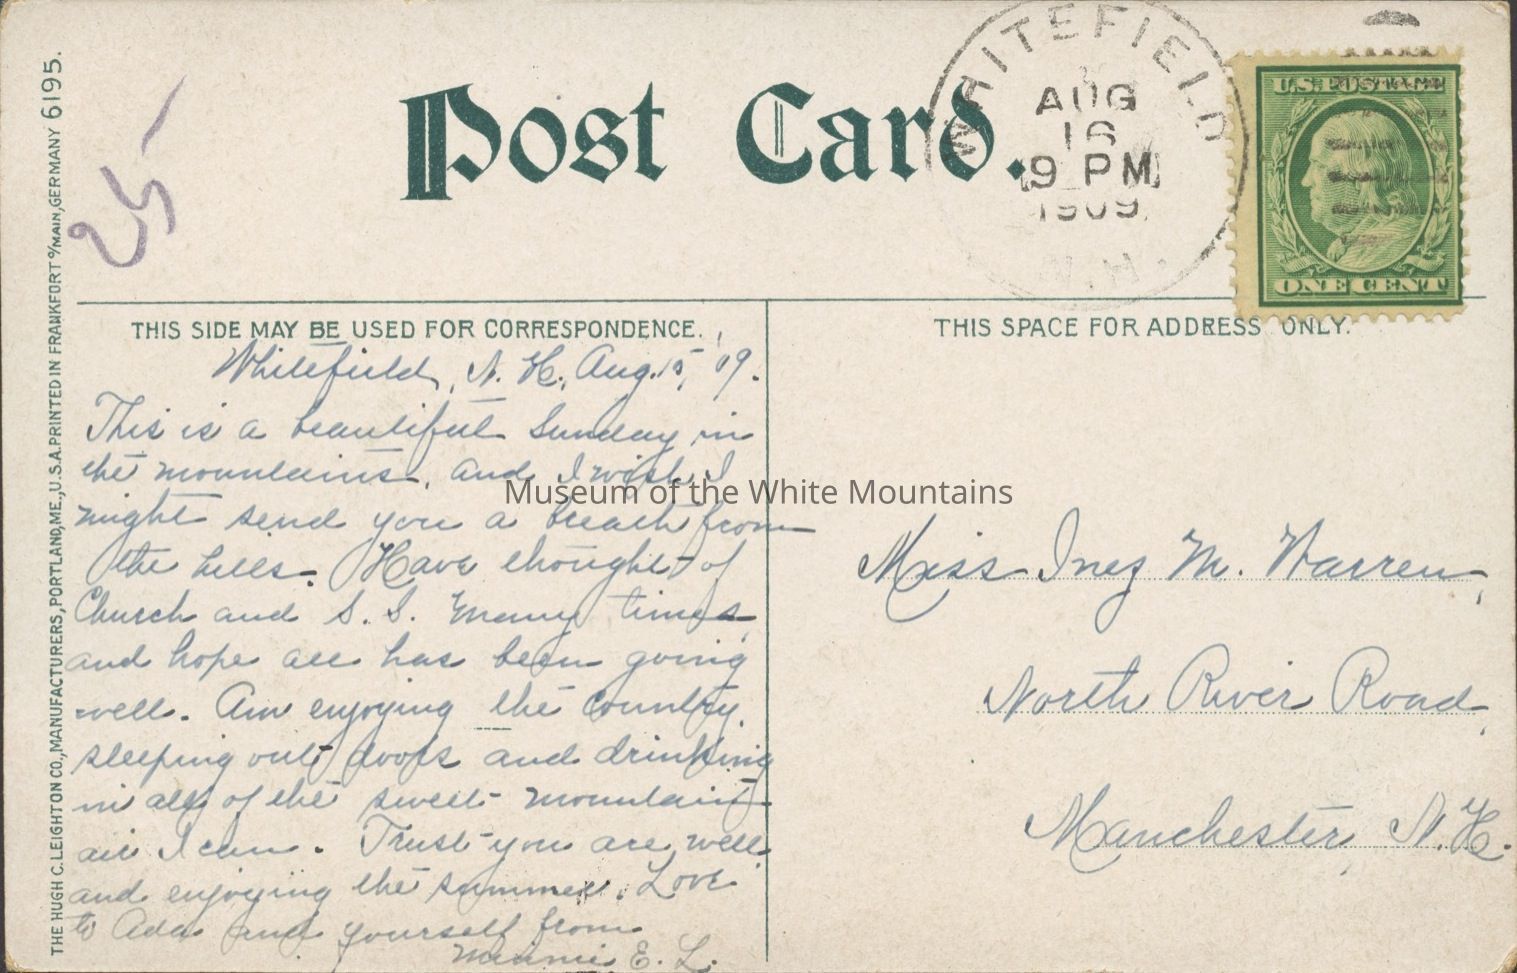 THE HUGH C. LEIGHTON CO., MANUFACTURERS, PORTLAND, ME., U.S.A. PRINTED IN FRANKFORT o/MAIN, GERMANY 6195.
25
Post Card.
WHITEFIELD
AUG
16
9 PM
1909
N.H.
U.S. POSTAGE
ONE CENT
THIS SIDE MAY BE USED FOR CORRESPONDENCE.
Whitefield, N. H., Aug. 15, '09.
This is a beautiful Sunday in
the mountains, and I wish I
might send you a breath from
the hills. Have thought of
Church and S. S. many times,
and hope all has been going
well. Am enjoying the country,
sleeping out doors and drinking
in all of the sweet mountain
air I can. Trust you are well
and enjoying the summer. Love
to Ada and yourself from
Minnie E. L.
THIS SPACE FOR ADDRESS ONLY.
Miss Inez M. Warren,
North River Road,
Manchester, N.H.
Museum of the White Mountains